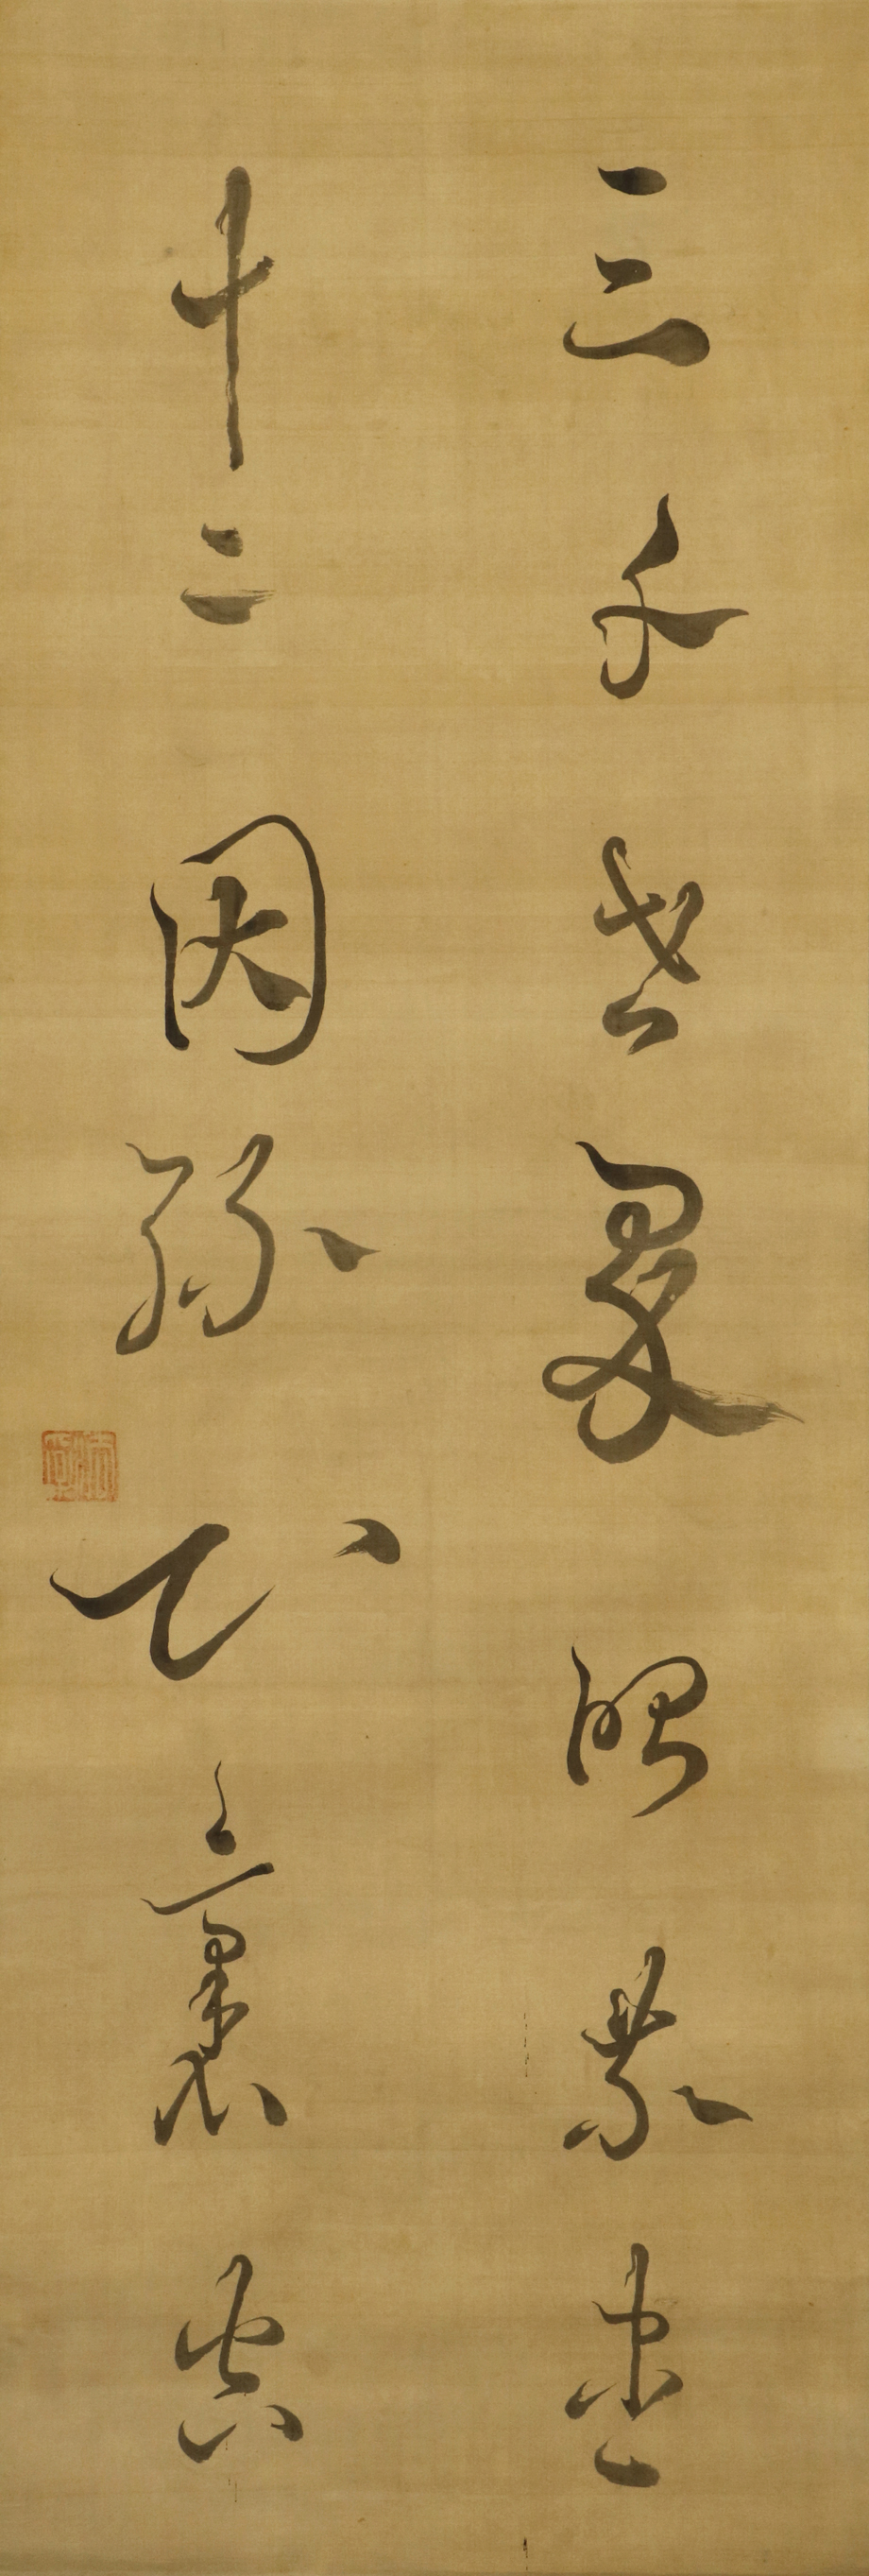 三千世界眼前盡
十二因緣心裏空